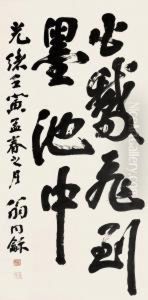 鵞飛到
墨池中
光緒壬寅孟春之月
翁同龢